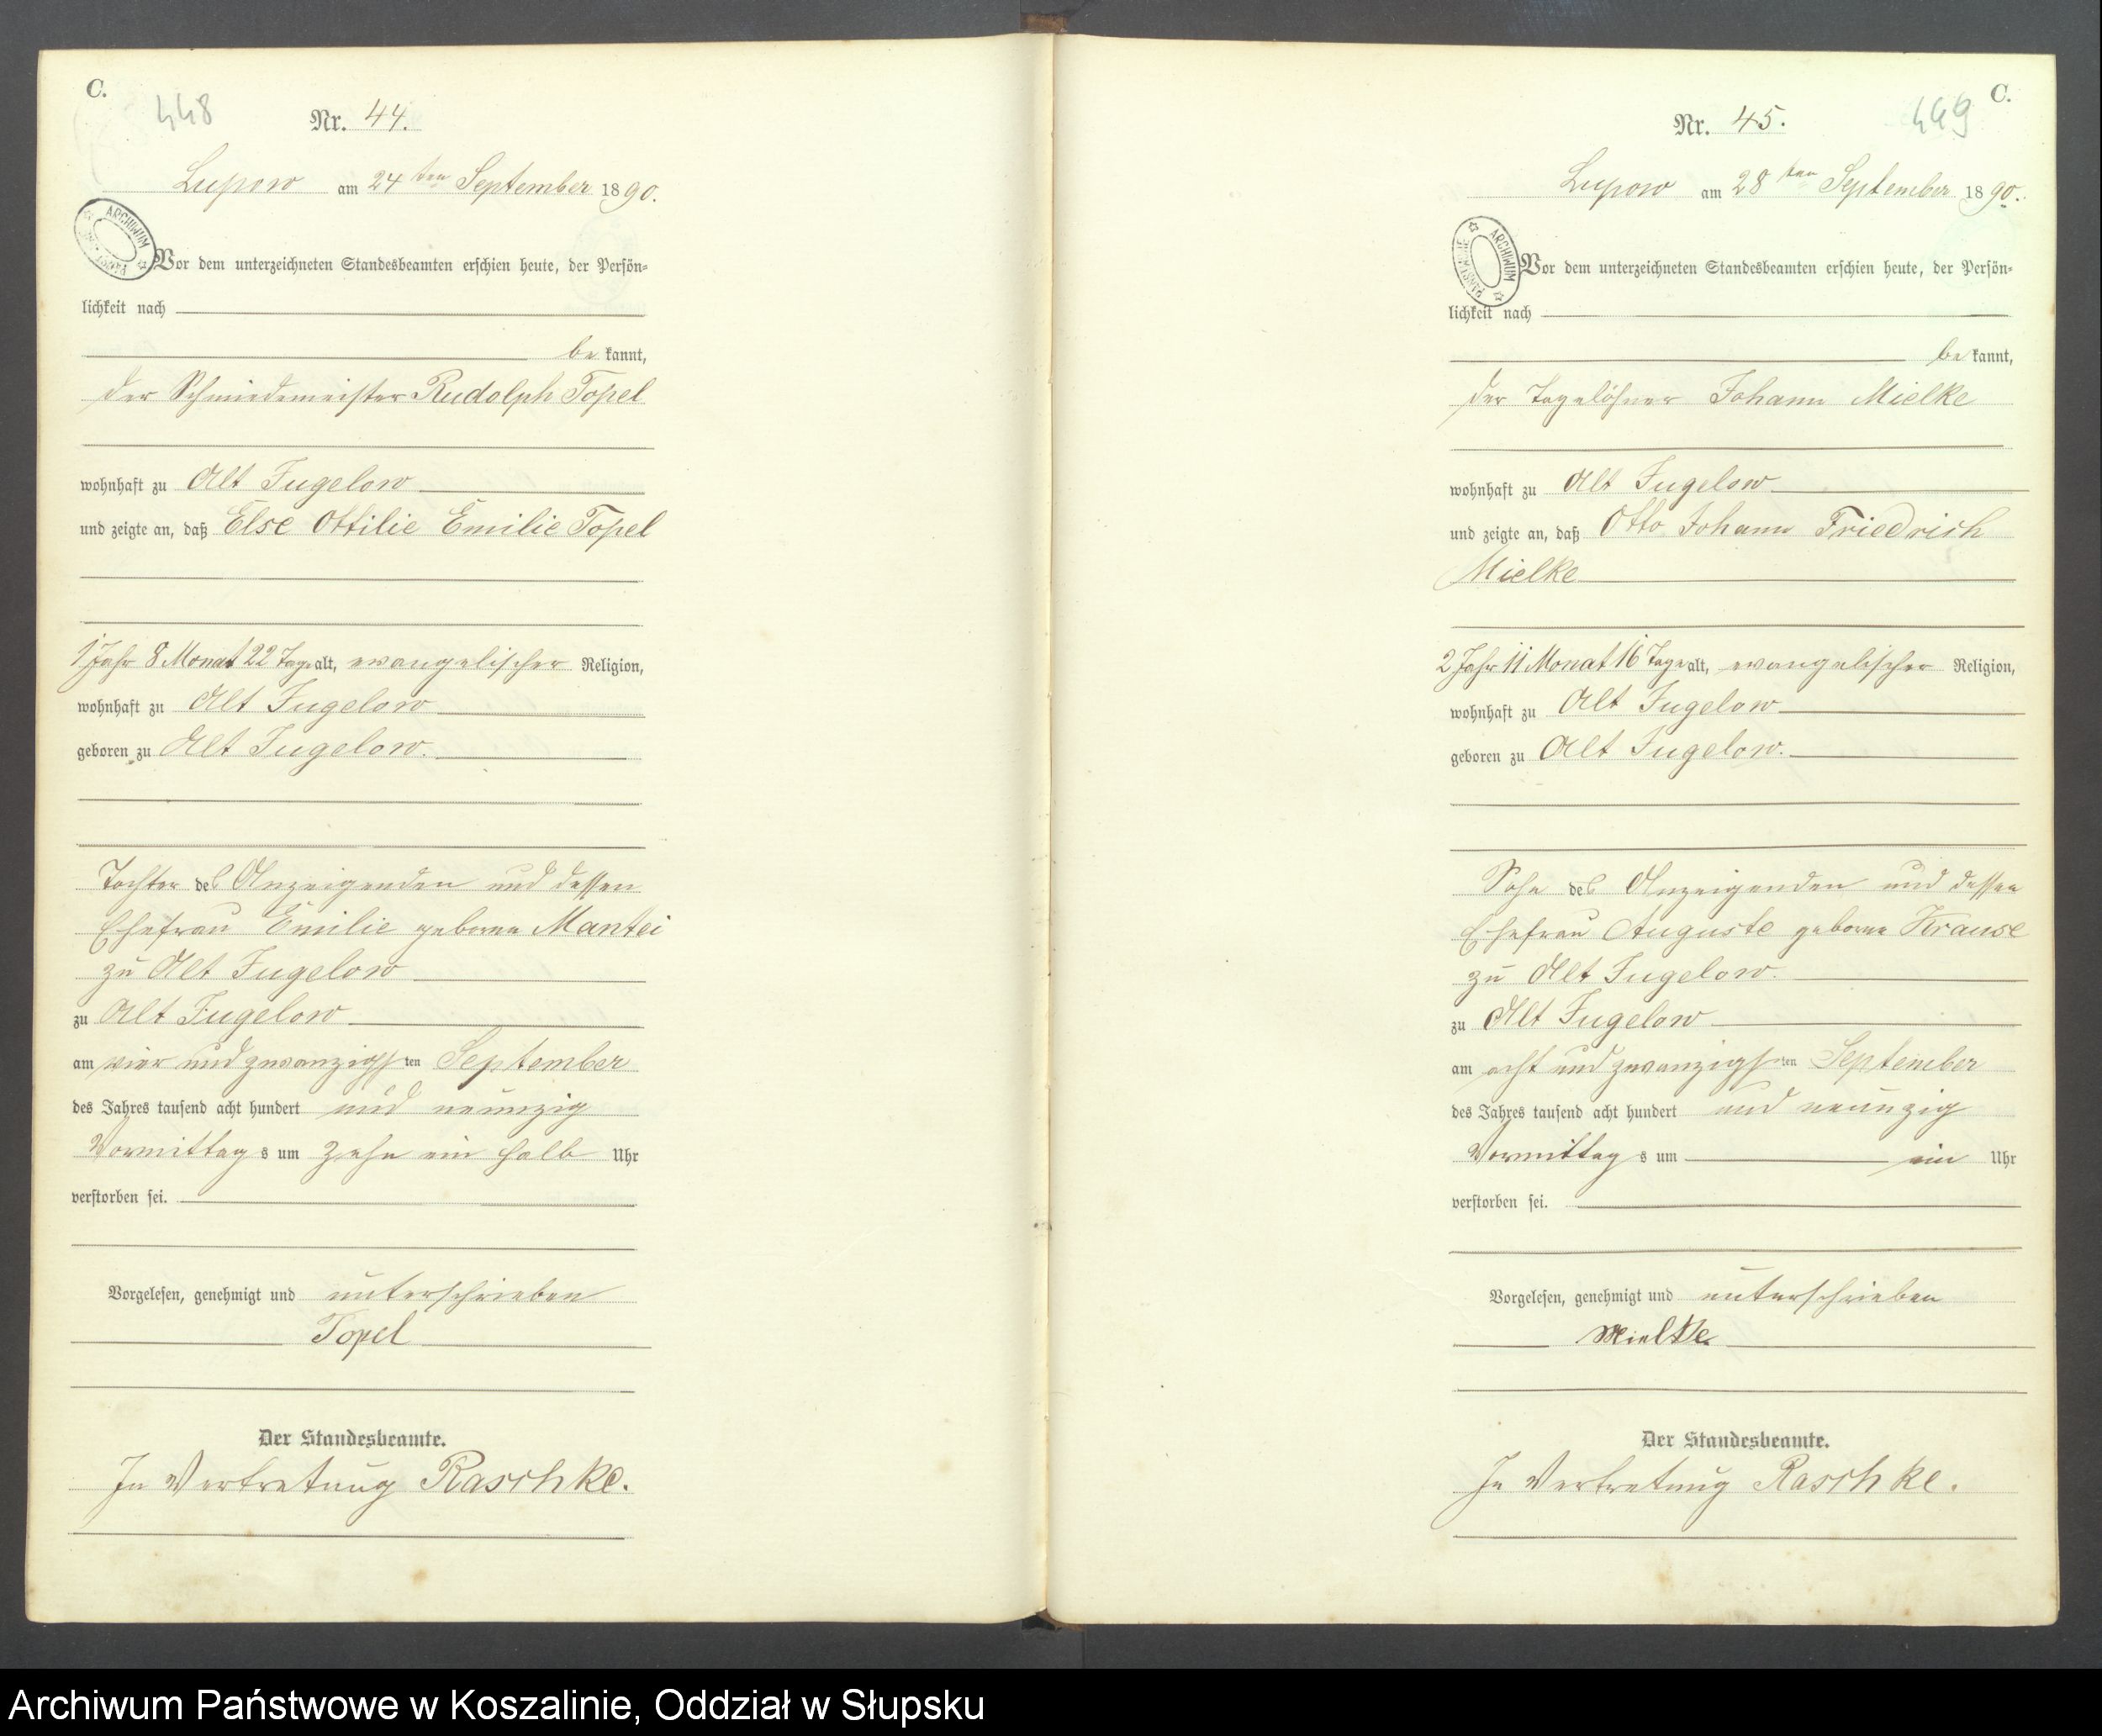 C.
448
Nr. 44.
Lupow am 24ten September 1890.
ARCHIWUM
Vor dem unterzeichneten Standesbeamten erschien heute, der Persön-
lichkeit nach
be kannt,
der Schmiedemeister Rudolph Topel
wohnhaft zu Alt Jugelow
und zeigte an, daß Else Ottilie Emilie Topel
1 Jahr 8 Monat 22 Tage alt, evangelischer Religion,
wohnhaft zu Alt Jugelow
geboren zu Alt Jugelow.
Tochter des Anzeigenden und dessen
Ehefrau Emilie geborne Mantei
zu Alt Jugelow
zu Alt Jugelow
am vier und zwanzigsten September
des Jahres tausend acht hundert und neunzig
Vormittags um zehn ein halb Uhr
verstorben sei.
Vorgelesen, genehmigt und unterschrieben
Topel
Der Standesbeamte.
In Vertretung Raschke.
C.
449
Nr. 45.
Lupow am 28ten September 1890.
ARCHIWUM
Vor dem unterzeichneten Standesbeamten erschien heute, der Persön-
lichkeit nach
be kannt,
der Tagelöhner Johann Mielke
wohnhaft zu Alt Jugelow
und zeigte an, daß Otto Johann Friedrich
Mielke
2 Jahr 11 Monat 16 Tage alt, evangelischer Religion,
wohnhaft zu Alt Jugelow
geboren zu Alt Jugelow.
Sohn des Anzeigenden und dessen
Ehefrau Auguste geborne Krause
zu Alt Jugelow.
zu Alt Jugelow
am acht und zwanzigsten September
des Jahres tausend acht hundert und neunzig
Vormittags um ein Uhr
verstorben sei.
Vorgelesen, genehmigt und unterschrieben
Mielke.
Der Standesbeamte.
In Vertretung Raschke.
Archiwum Państwowe w Koszalinie, Oddział w Słupsku